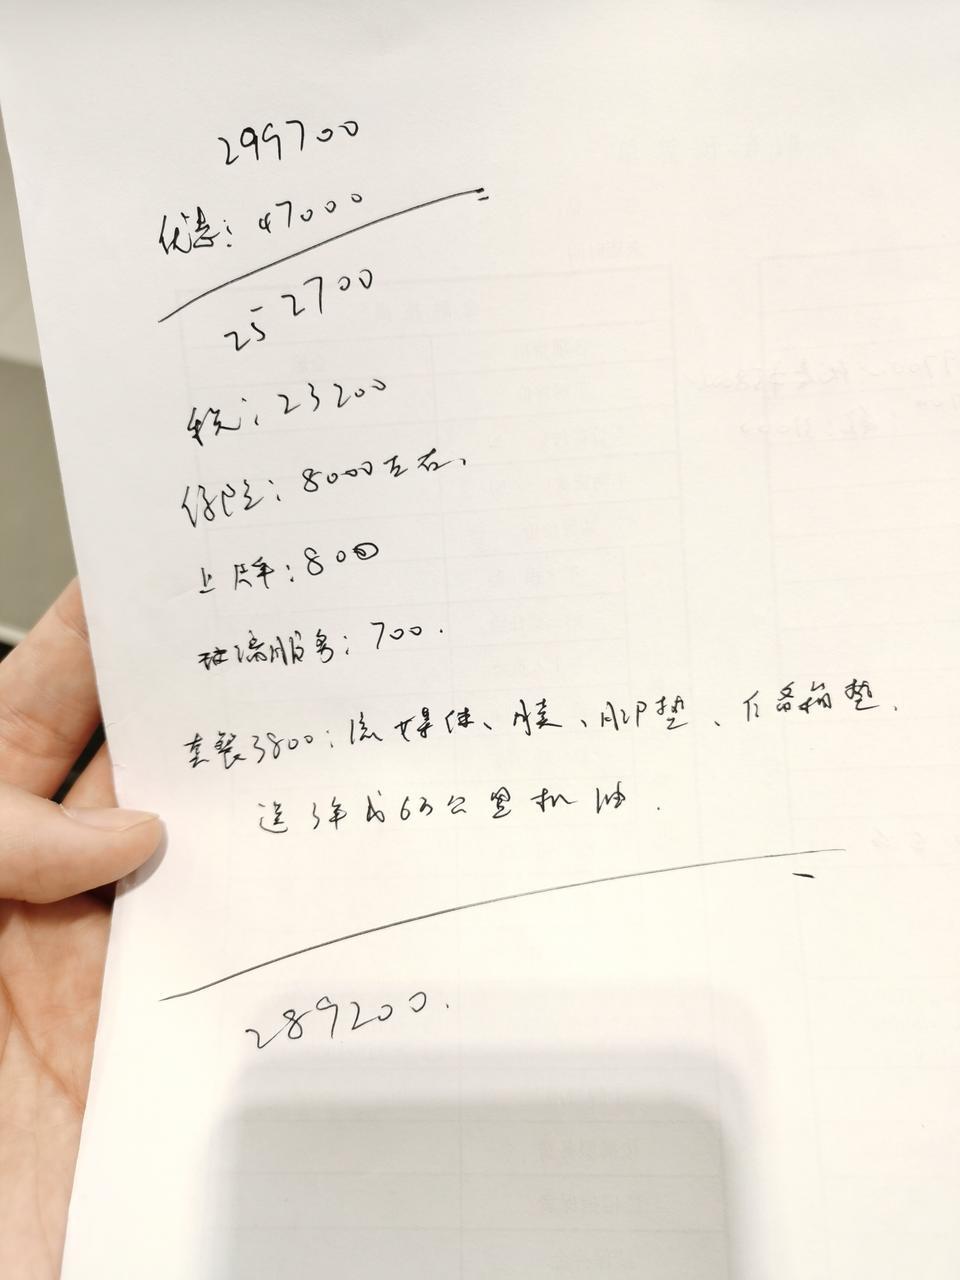 299700
优惠: 47000
252700
税: 23200
保险: 8000左右.
上牌: 800
玻璃服务: 700.
套餐3800: 流媒体、膜、脚垫、后备箱垫.
送3年或6万公里机油.
289200.